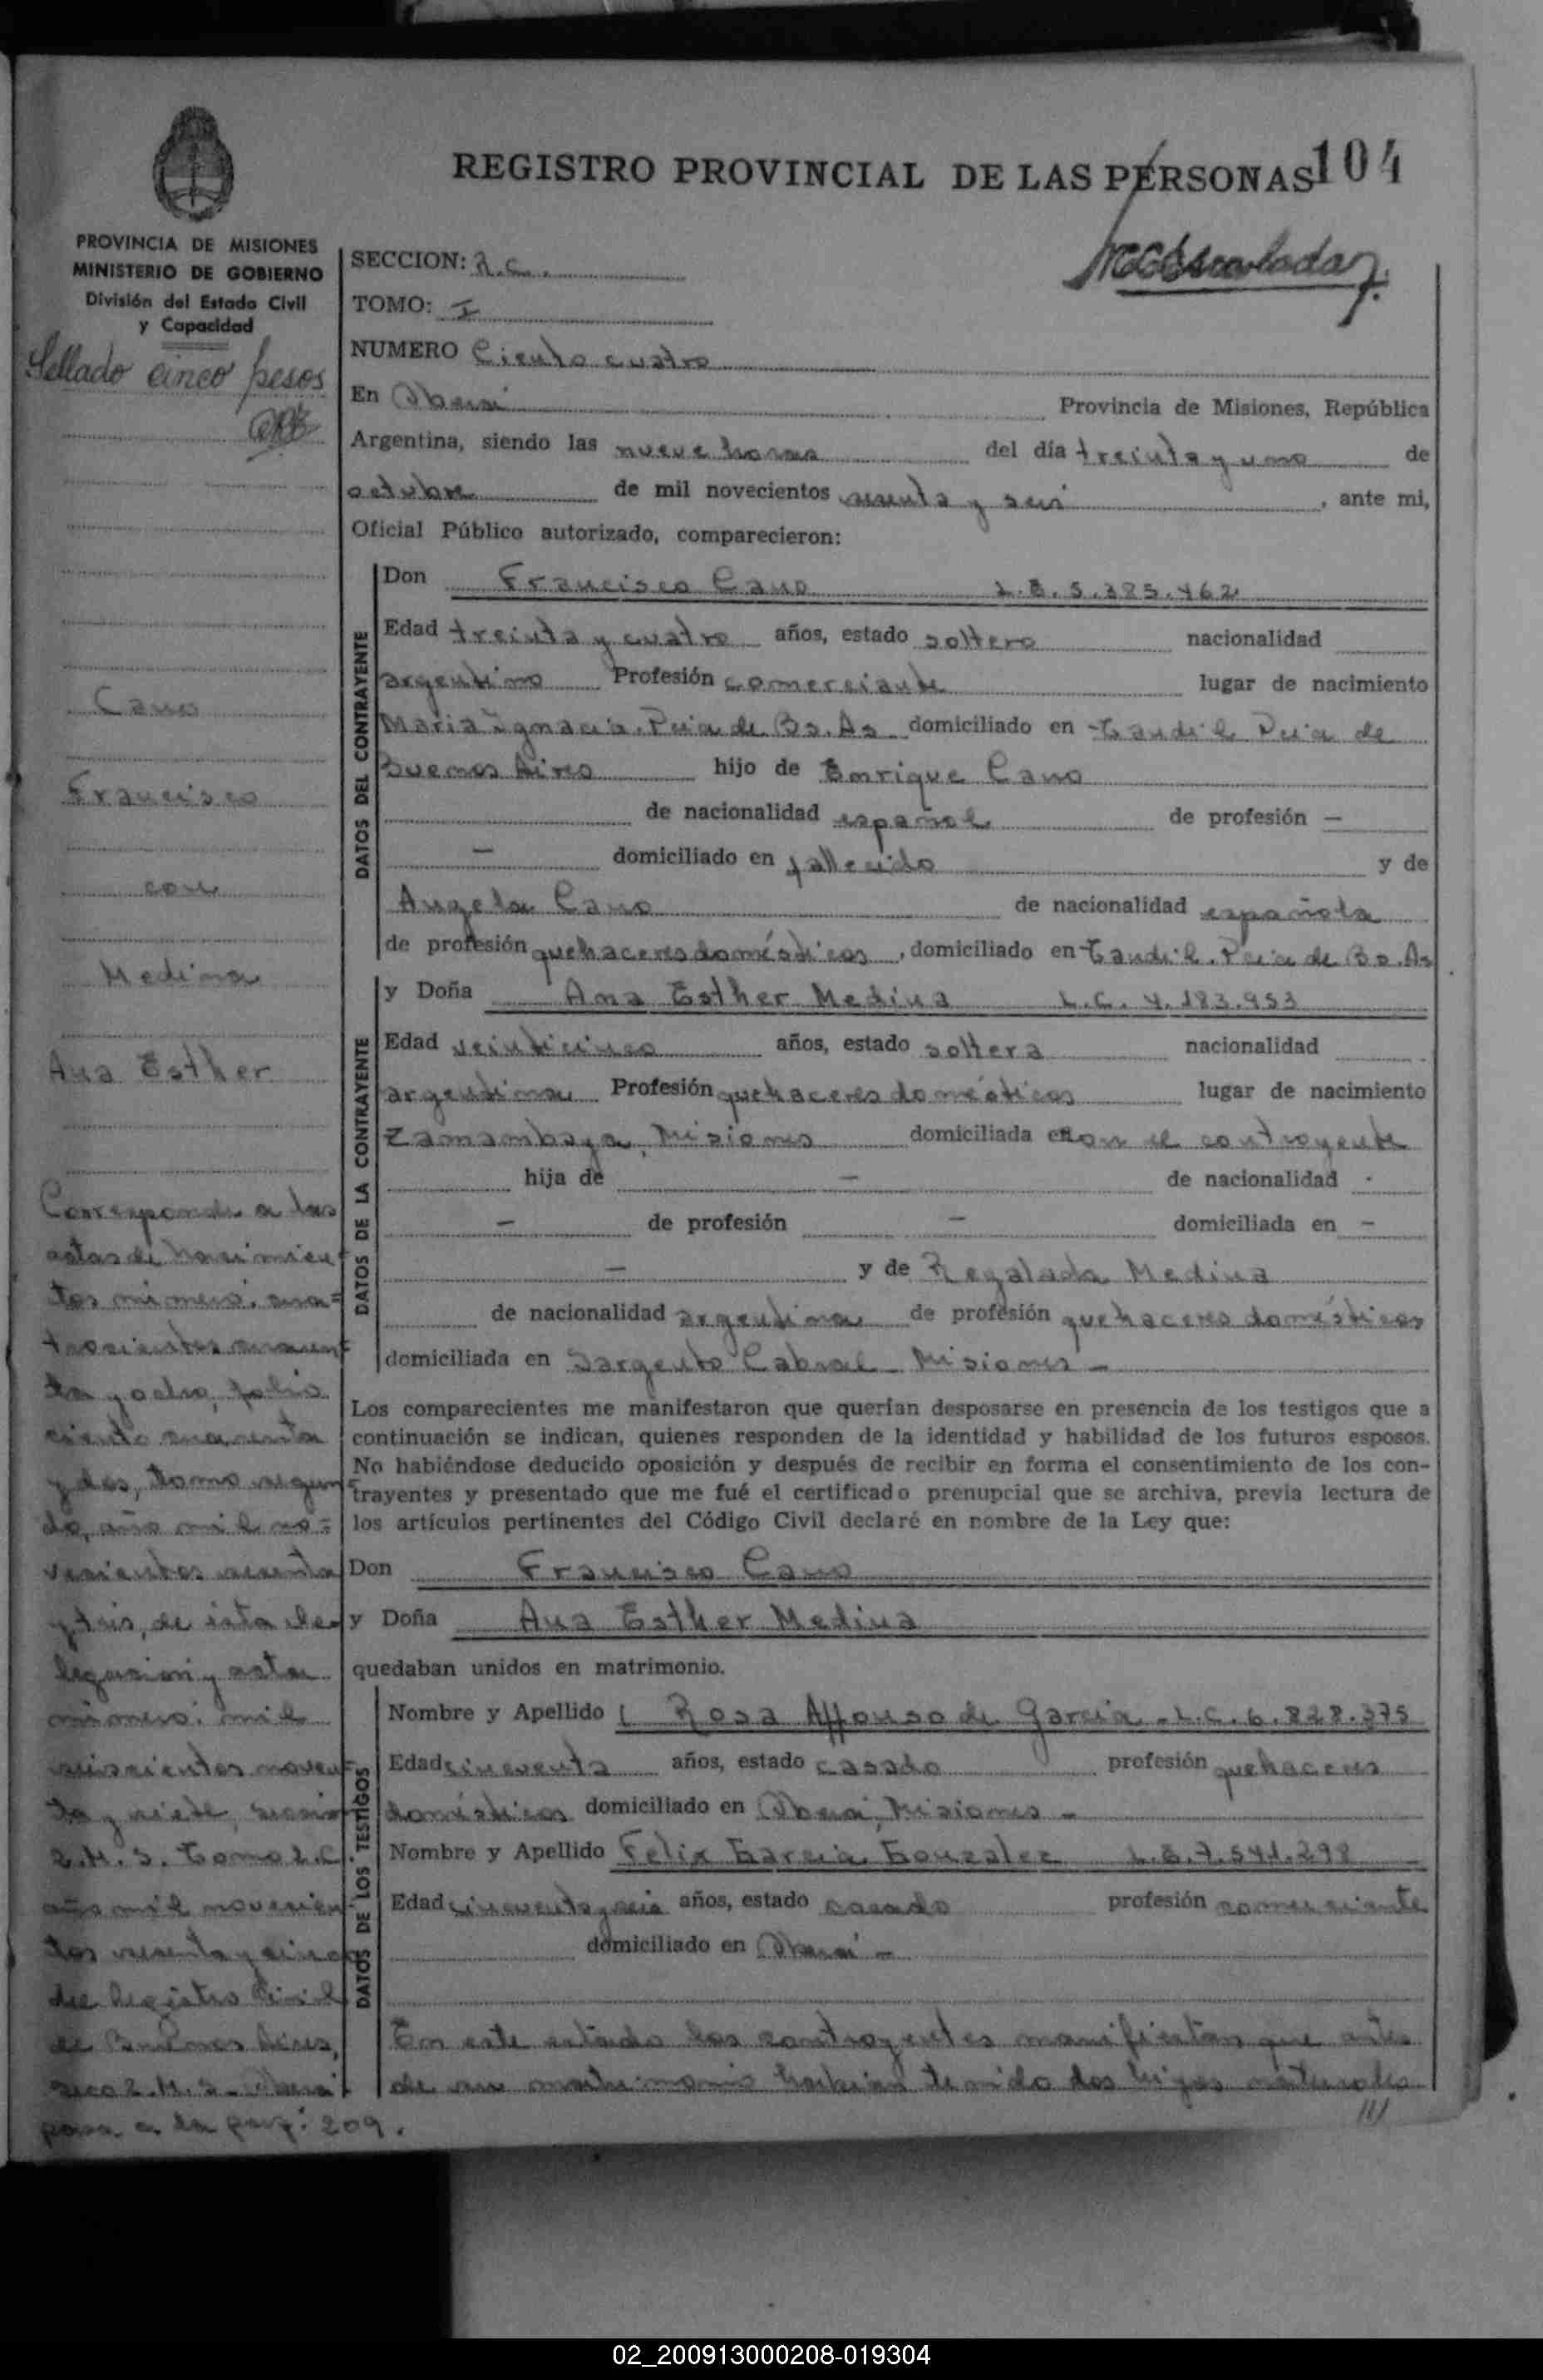 REGISTRO PROVINCIAL DE LAS PERSONAS 104
PROVINCIA DE MISIONES
MINISTERIO DE GOBIERNO
División del Estado Civil
y Capacidad
Sellado cinco pesos
SECCION: R.C.
TOMO: I
NUMERO Ciento cuatro
En Oberá Provincia de Misiones, República
Argentina, siendo las nueve horas del día treinta y uno de
octubre de mil novecientos sesenta y seis, ante mi,
Oficial Público autorizado, comparecieron:
DATOS DEL CONTRAYENTE
Don Francisco Cano L.E. 5.385.462
Edad treinta y cuatro años, estado soltero nacionalidad
argentino Profesión comerciante lugar de nacimiento
Maria Ignacia. Pcia de Bs. As domiciliado en Tandil Pcia de
Buenos Aires hijo de Enrique Cano
de nacionalidad español de profesión —
— domiciliado en fallecido y de
Angela Cano de nacionalidad española
de profesión quehaceres domésticos, domiciliado en Tandil. Pcia de Bs. As
DATOS DE LA CONTRAYENTE
y Doña Ana Esther Medina L.C. 4.183.953
Edad veinticinco años, estado soltera nacionalidad
argentina Profesión quehaceres domésticos lugar de nacimiento
Zamambaya, Misiones domiciliada con el contrayente
hija de — de nacionalidad -
— de profesión — domiciliada en —
— y de Regalada Medina
de nacionalidad argentina de profesión quehaceres domésticos
domiciliada en Sargento Cabral Misiones -
Los comparecientes me manifestaron que querían desposarse en presencia de los testigos que a
continuación se indican, quienes responden de la identidad y habilidad de los futuros esposos.
No habiéndose deducido oposición y después de recibir en forma el consentimiento de los con-
trayentes y presentado que me fué el certificado prenupcial que se archiva, previa lectura de
los artículos pertinentes del Código Civil declaré en nombre de la Ley que:
Don Francisco Cano
y Doña Ana Esther Medina
quedaban unidos en matrimonio.
DATOS DE LOS TESTIGOS
Nombre y Apellido Rosa Affonso de Garcia - L.C. 6.828.375
Edad cincuenta años, estado casada profesión quehaceres
domésticos domiciliado en Oberá, Misiones -
Nombre y Apellido Felix Garcia Gonzalez L.E. 7.541.298
Edad cincuenta y seis años, estado casado profesión comerciante
domiciliado en Oberá -
En este estado los contrayentes manifiestan que antes
de su matrimonio habian tenido dos hijos naturales
///
Cano
Francisco
con
Medina
Ana Esther
Corresponde a las
actas de nacimien-
tos número: cua-
trocientos cuaren-
ta y ocho, folio
ciento cuarenta
y dos, tomo segun-
do, año mil no-
vecientos sesenta
y tres, de ésta de-
legación y acta
número: mil
seiscientos noven-
ta y siete, sección
2.H.S. Tomo 2.C.
año mil novecien-
tos sesenta y cinco
del Registro Civil
de Buenos Aires,
2.H.S. - Oberá
pasa a la pag: 209.
02_200913000208-019304